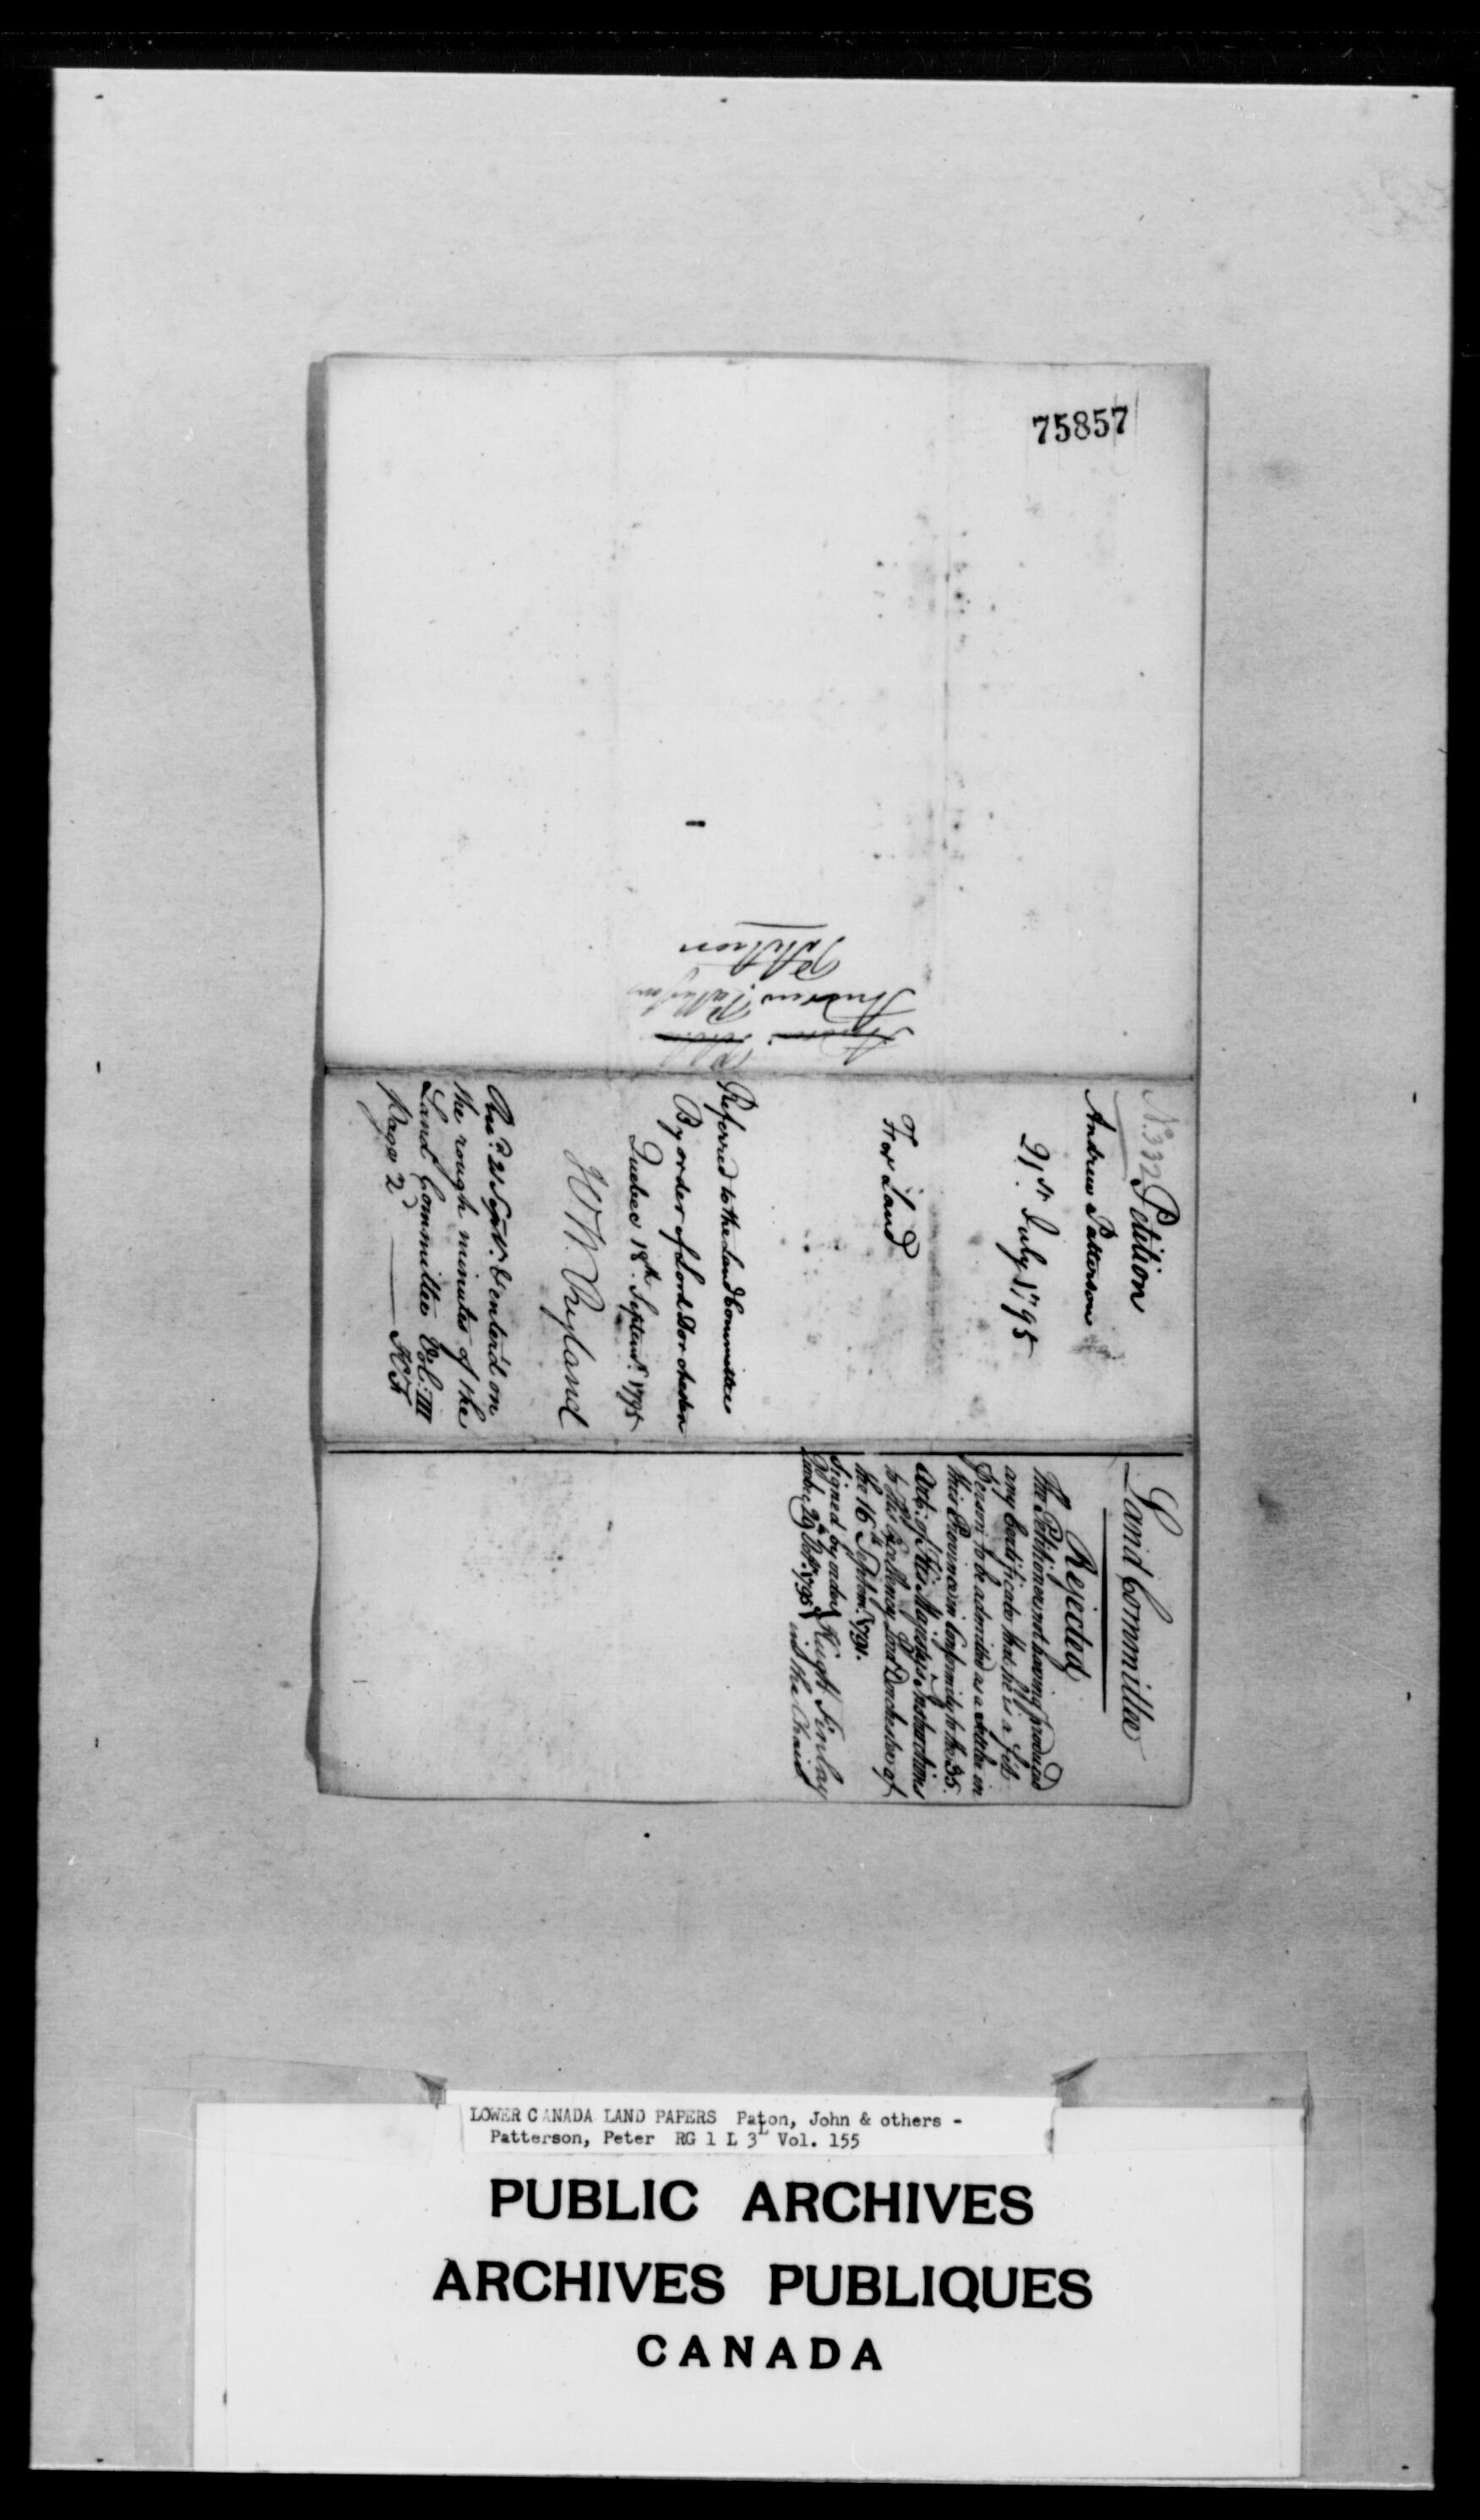 75857
Andrew Patterson
Petition
N.o 332 Petition
Andrew Patterson
21st July 1795
For Land
Referred to the Land Committee
By order of Lord Dorchester
Quebec 18th Septemr. 1795
H W Ryland
Recd. 21 Septr. & enter'd on
the rough minutes of the
Land Committee Vol: III
page 2d
H F
Land Committee
Rejected
The Petitioner not having produced
any Certificate that he is a fit
Person to be admitted as a settler in
this Province in Conformity to the 35.
Art: of His Majesty's Instructions
to His Excellency Lord Dorchester of
the 16th Septem: 1791.
Signed by order Hugh Finlay
Quebec 29th Octr. 1795 in the Chair
LOWER CANADA LAND PAPERS Paton, John & others -
Patterson, Peter RG 1 L 3L Vol. 155
PUBLIC ARCHIVES
ARCHIVES PUBLIQUES
CANADA